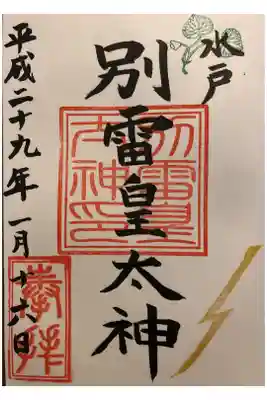 水戸
別雷皇太神
平成二十九年 一月十六日
奉拝
別雷皇
太神之印